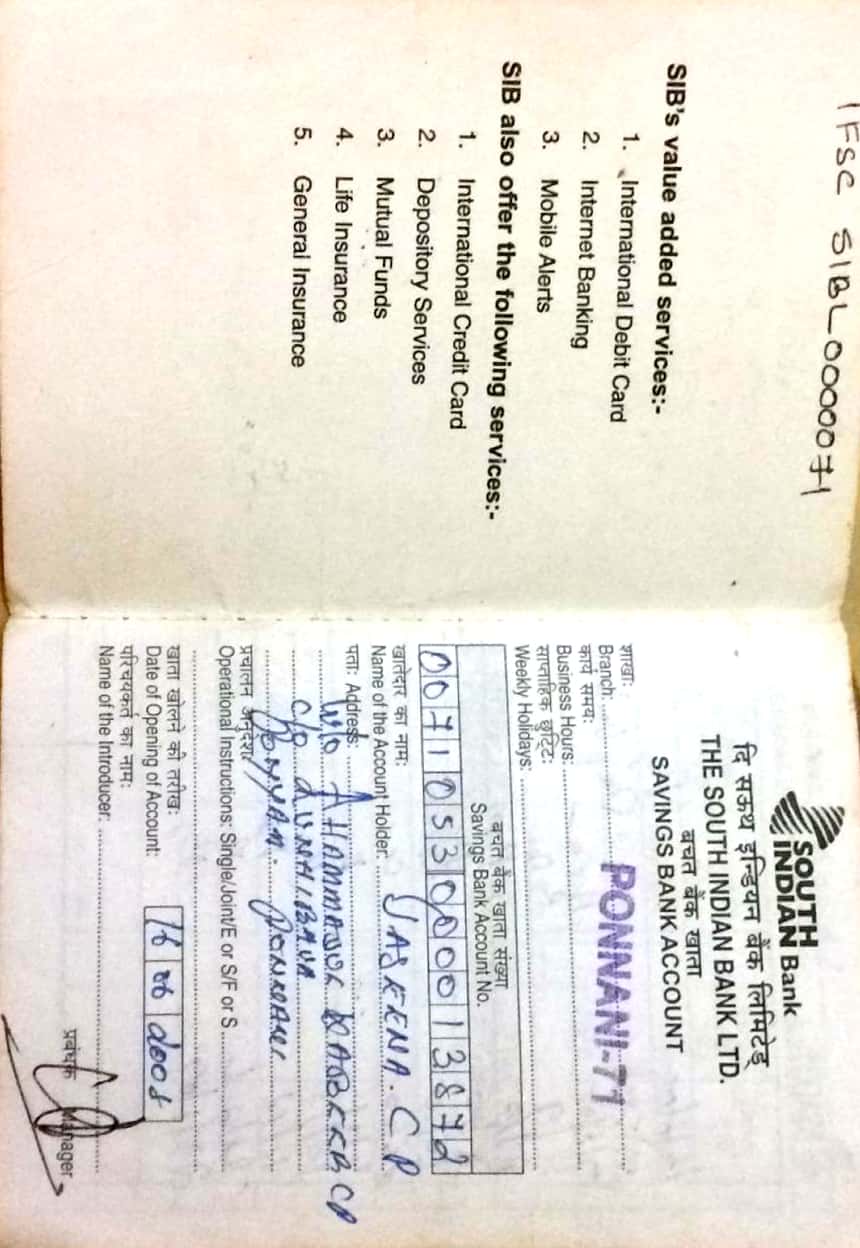 IFSC SIBL0000071
SIB's value added services:-
1. International Debit Card
2. Internet Banking
3. Mobile Alerts
SIB also offer the following services:-
1. International Credit Card
2. Depository Services
3. Mutual Funds
4. Life Insurance
5. General Insurance
SOUTH
INDIAN Bank
दि साऊथ इन्डियन बैंक लिमिटेड्
THE SOUTH INDIAN BANK LTD.
बचत बैंक खाता
SAVINGS BANK ACCOUNT
शाखा:
Branch: PONNANI-71
कार्य समय:
Business Hours:
साप्ताहिक छुट्टि:
Weekly Holidays:
बचत बैंक खाता संख्या
Savings Bank Account No.
0071053000013872
खातेदार का नाम:
Name of the Account Holder: JASEENA. C P
पता: Address: W/O AHAMMADUL KABEER CP
C/O
PONNANI
प्रचालन अनुदेश:
Operational Instructions: Single/Joint/E or S/F or S
खाता खोलने की तारीख:
Date of Opening of Account: 16 06 2008
परिचयकर्ता का नाम:
Name of the Introducer:
प्रबंधक Manager